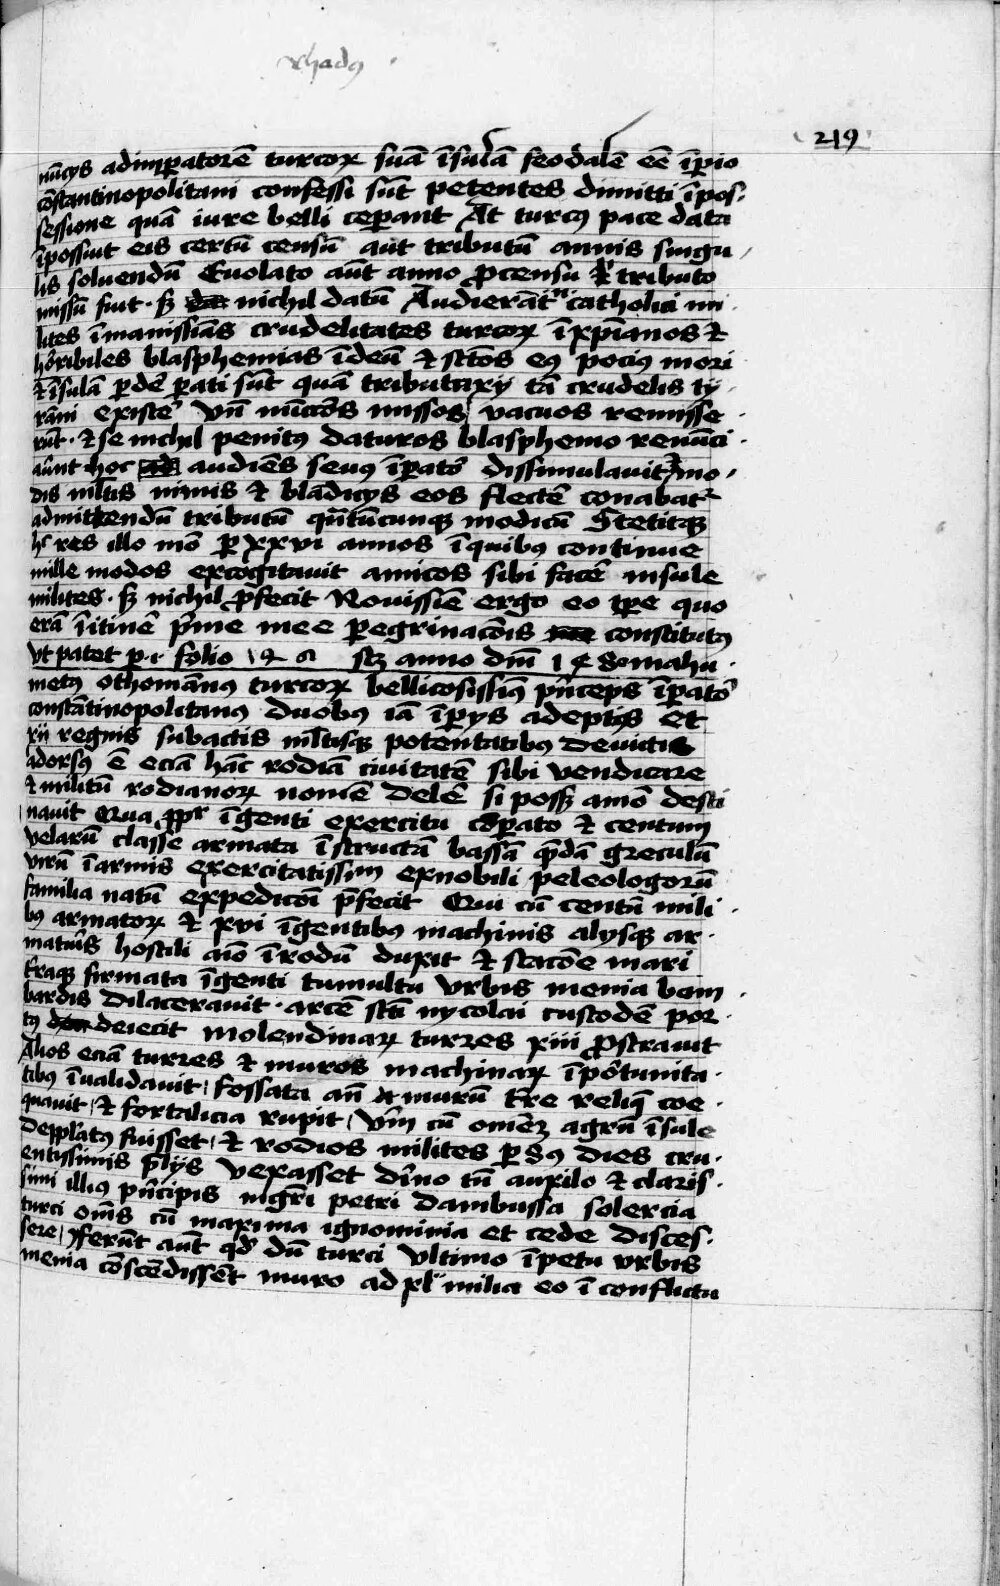 rhadꝰ
219
nūcys adimꝑatorē turcoꝝ suā īsulā feodalē eē īꝑio
cōstantinopolitani confessi sūt petentes dimitti īpos-
sessione quā iure belli ceperant At turcꝰ pace data
īposuit eis certū censū aūt tributū annis singu
lis soluendū Euolato aūt anno ꝓcensu ⁊ tributo
missū fuit · sꝫ nichil datū Audierāt catholici mi
lites īmanissimas crudelitates turcoꝝ ī xp̄ianos ⁊
hōribiles blasphemias ī deū ⁊ sctōs eꝰ pociꝰ mori
⁊ īsulā ꝑdē ꝑati sūt quā tributary tā crudelis ty-
rāni existē Vn̄ nūctōs missos vacuos remisse
rūt · ⁊ se nichil penitꝰ daturos blasphemo renūci
aūnt hoc audiēs seuꝰ īꝑatō dissimulauit mo-
dis ml̄tis nimis ⁊ blādicys eos flectē conabat᷑
admittendū tributū qn̄tūcunqꝫ modicū Stetitqꝫ
hec res illo mō ꝑ xxvi annos ī quibꝰ continue
mille modos excogitauit amicos sibi facē insule
milites · sꝫ nichil ꝓfecit Nouissīe ergo eo tꝑe quo
erā ī itinē pͥme mee ꝑegrinacōis constitutꝰ
vt patet ꝑ.1 folio sꝫ anno dn̄i mahu-
metꝰ othomānꝰ turcoꝝ bellicosissimꝰ pͥnceps īꝑatō
constātinopolitanꝰ duobꝰ iā īꝑys adeptis et
xij regnis subactis ml̄tisqꝫ potentatibꝰ deuictis
adorsꝰ ē eciā hāc rodiā ciuitatē sibi vendicare
⁊ militū rodianoꝝ nomē delē si possꝫ amō desti
nauit Qua ꝓpt᷑ īgenti exercitu cōꝑato ⁊ centum
velarū classe armata īstructā bassā qͣdā greculū
virū ī armis exercitatissim exnobili peleologorū
familia natū expedicōi p̄fecit Qui cū centū mili
bꝰ armatoꝝ ⁊ xvi īgentibꝰ machinis alysqꝫ ar-
maturis hostili aīo ī rodū duxit ⁊ stacōe mari
tͬraqꝫ firmata īgenti tumultu vrbis menia bom
bardis dilacerauit · arcē sctī nycolai custodē por-
tꝰ deiecit molendinaꝝ turres xiii ꝓstrauit
Alios eciā turres ⁊ muros machinaꝝ īpōtunita-
tibus īualidauit / fossata aū ⁊ murū tͬre reliqͥ coe-
quauit / ⁊ fortalicia rupit / Vͬm cū omēꝫ agrū īsule
depplatꝰ fuisset / ⁊ rodios milites ꝑ dies cru-
entissimis p̄lijs vexasset dīno tū auxilo ⁊ claris-
simi illiꝰ pͥncipis mgr̄i petri dambussa solercia
turci om̄s cū maxima ignominia et cede disces-
sere / ꝯferūt aūt qđ dū turci vltimo īpetu vrbis
menia cōscēdissēt muro ad xl milia eo ī conflictu